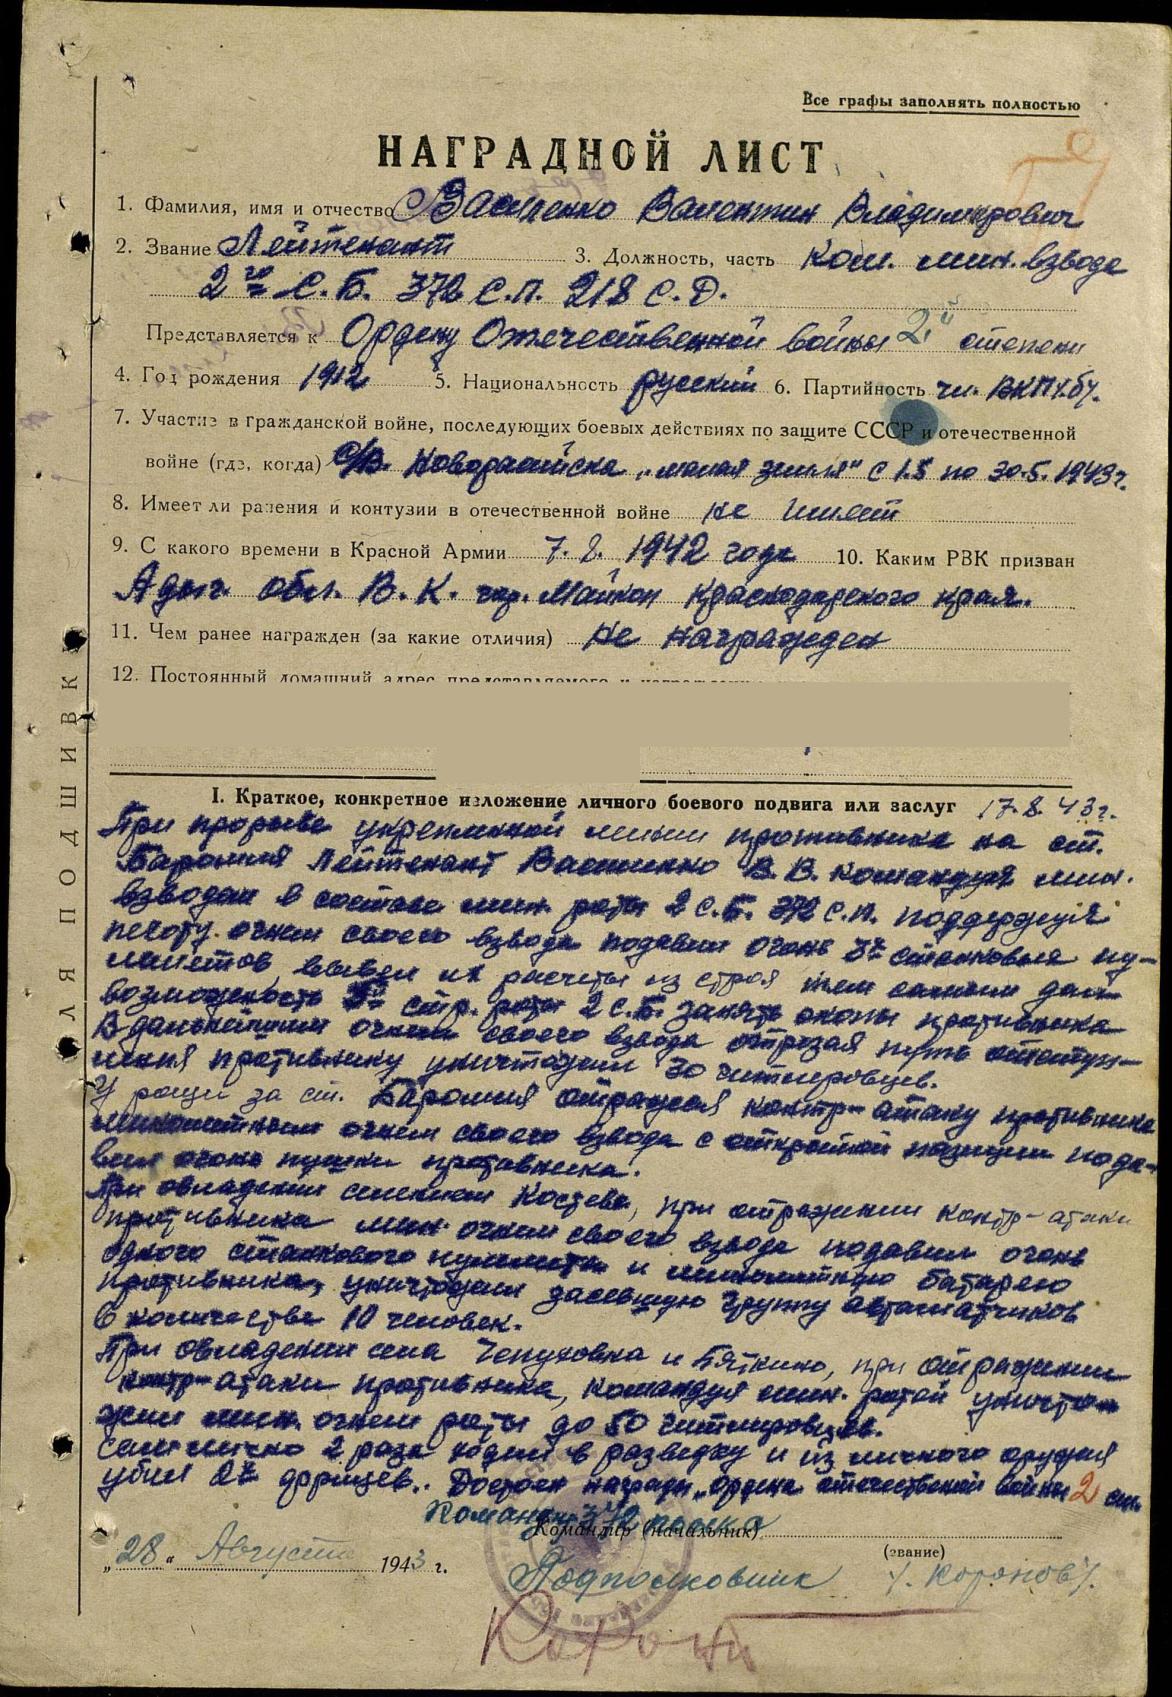 Все графы заполнять полностью
НАГРАДНОЙ ЛИСТ
1. Фамилия, имя и отчество Василенко Валентин Владимирович
2. Звание Лейтенант 3. Должность, часть Ком. мин. взвода
2го С.Б. 372 С.П. 218 С.Д.
Представляется к Ордену Отечественной войны 2й степени
4. Год рождения 1912 5. Национальность русский 6. Партийность чл. ВКП/б/.
7. Участие в гражданской войне, последующих боевых действиях по защите СССР и отечественной
войне (где, когда) Новороссийска „малая земля" с 1.5 по 30.5.1943г.
8. Имеет ли ранения и контузии в отечественной войне не имеет
9. С какого времени в Красной Армии 7.8.1942 года 10. Каким РВК призван
Адыг. обл. В.К. гор. Майкоп Краснодарского края.
11. Чем ранее награжден (за какие отличия) не награжден
12. Постоянный домашний адрес представляемого к
ДЛЯ ПОДШИВКИ
I. Краткое, конкретное изложение личного боевого подвига или заслуг 17.8.43г.
При прорыве укрепленной линии противника на ст.
Баромля Лейтенант Василенко В.В. командуя мин.
взводом в составе мин. роты 2 С.Б. 372 С.П. поддерживая
пехоту огнем своего взвода подавил огонь 3х станковых пу-
леметов, вывел их расчеты из строя тем самым дал
возможность стр. роты 2 С.Б. занять окопы противника
В дальнейшем огнем своего взвода отрезая путь отступ-
ления противнику уничтожил 30 гитлеровцев.
У рощи за ст. Баромля отражая контр-атаку противника
минометным огнем своего взвода с открытой позиции пода-
вил огонь пушки противника.
При овладении имением Костева, при отражении контр-атаки
противника мин. огнем своего взвода подавил огонь
одного станкового пулемета и минометную батарею
противника, уничтожил засевшую группу автоматчиков
в количестве 10 человек.
При овладении села Чепуховка и Бяткино, при отражении
контр-атаки противника, командуя мин. ротой уничто-
жил мин. огнем роты до 50 гитлеровцев.
Сам лично 2 раза ходил в разведку и из личного оружия
убил 2х фрицев.. Достоин награды „ордена отечественной войны 2 ст.
Командир 372 полка
Командир (начальник)
(звание)
„28" Августа 1943 г.
Подполковник /. Коронов/.